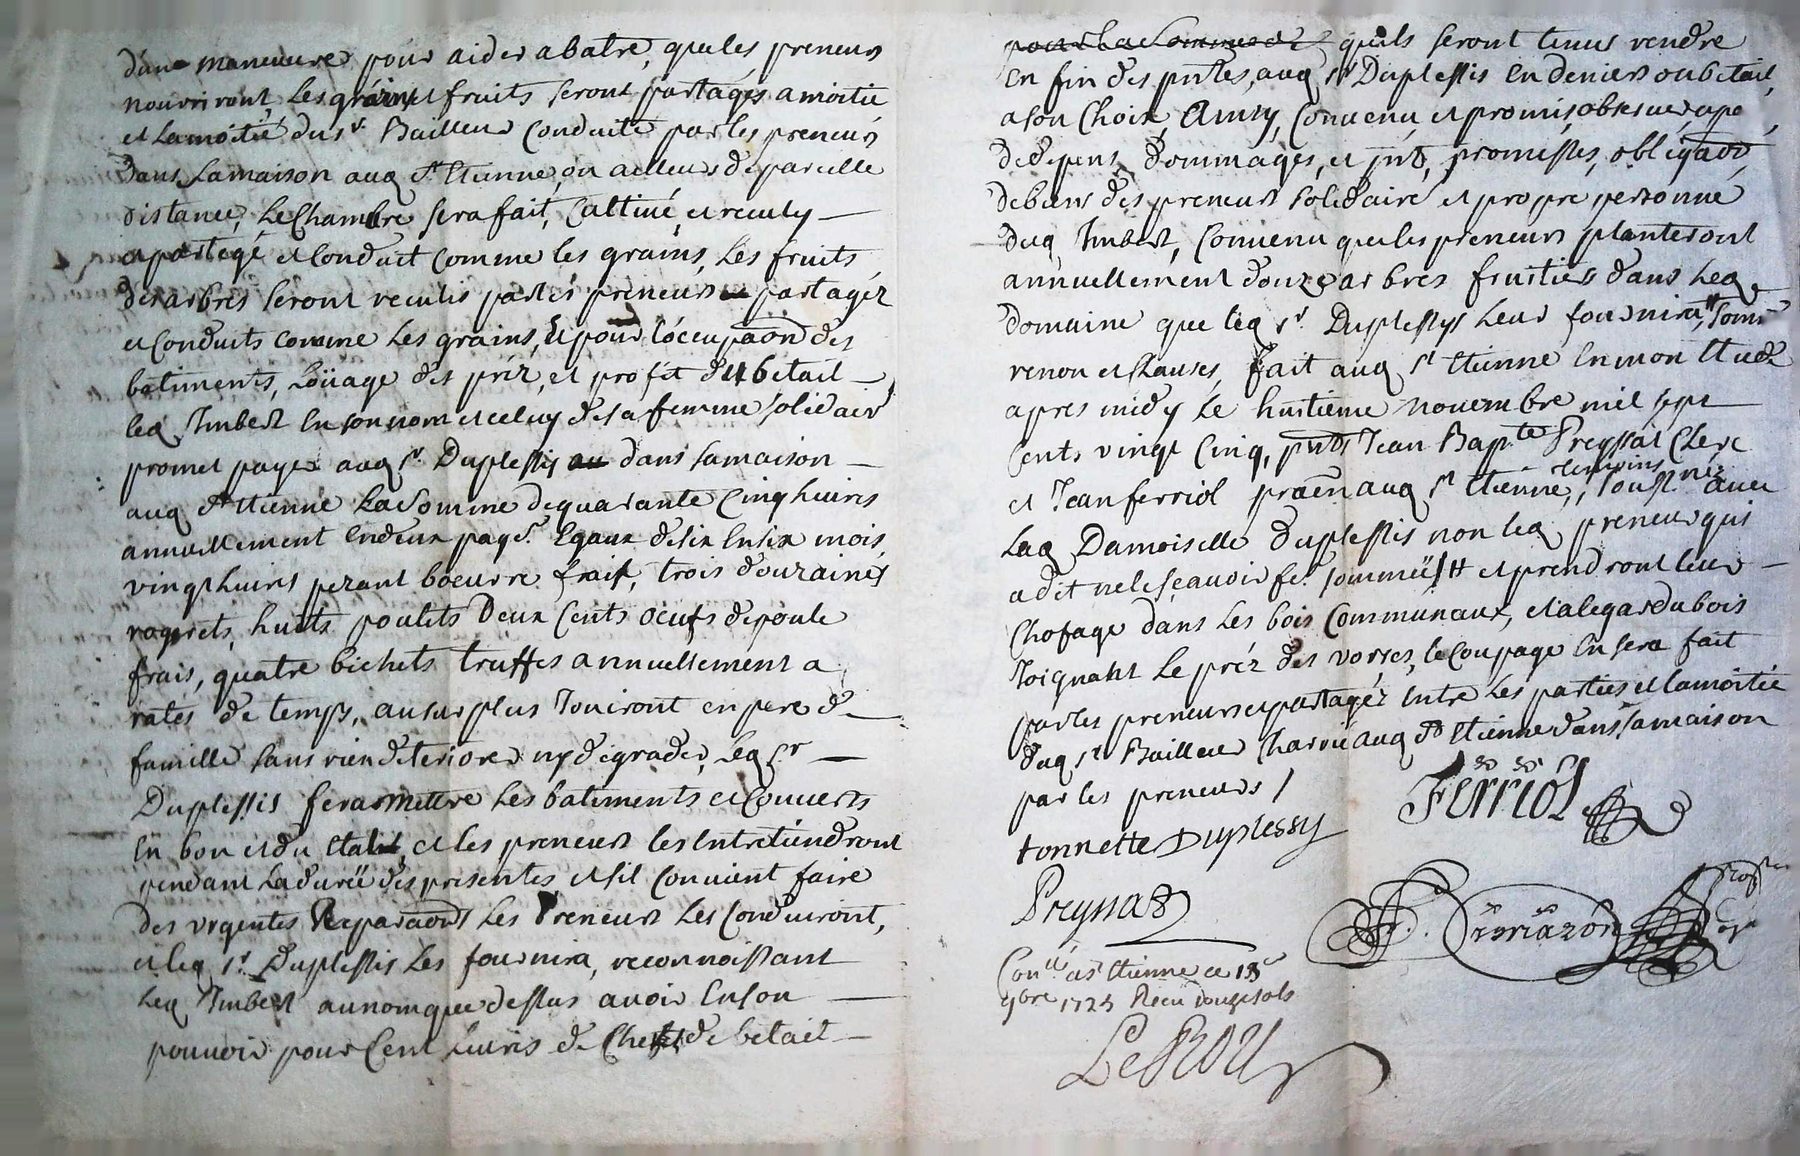 d'une maneuvre pour aider a batre, que les preneurs
nouriront, Les grains et fruits seront partagés a moitié
et La moitié du sr. Bailleur Conduite par les preneurs
dans La maison aud St. Etienne, ou ailleurs de pareille
distance, Le Chambre sera fait, Cultivé, et recully
apartegé et Conduit Comme les grains, Les fruits
des arbres seront reculis par les preneurs partagéz
et Conduits Comme Les grains, Et pour l'occupaon des
batiments, Loüage des préz, et profit du betail
led Imbert En son nom et celuy de sa femme solidair
promet payer aud sr. Duplessis dans sa maison
aud St Etienne La Somme de quarante Cinq livres
annuellement En deux paye. Egaux de six En six mois,
vingt livres pezant boeurre frais, trois douzaines
, huits poulets Deux Cents oeufs de poule
frais, quatre bichets truffes annuellement a
rates de temps, au surplus Jouiront en pere de
famille sans rien deteriorer ny degrader, Led sr
Duplessis fera mettre Les batiments et Couverts
En bon et du Etat, et les preneurs les Entretiendront
pendant La durée des presentes, et s'il Convient faire
des urgentes Reparaons Les Preneurs Les Conduiront,
et led sr. Duplessis Les fournira, reconnoissant
Led Imbert au nom que dessus avoir En son
pouvoir pour Cent Livres de de betail
pour la Somme de quels seront tenus rendre
En fin des pntes, aud sr Duplessis En deniers ou betail,
a son Choix, Ainsy, Convenu et promis observer a pe
de depens, dommages, et int, promesses, obligaon,
de biens des preneurs solidaire et propre personne
dud Imbert, Convenu que les preneurs planteront
annuellement douze arbres fruitiers dans Led
domaine que led sr. Duplessys Leur fournira,
renon et Clauses, fait aud St Etienne En mon Etude
apres midy Le huitieme novembre mil sept
Cents vingt Cinq, pnts Jean Bapte Preyssat Clerc
et Jean ferriol praen aud St Etienne, temoins soussnez avec
Lad Damoiselle duplessis non led preneur qui
a dit ne le sçavoir fe. sommé, # et prendront leur
Chofage dans Les bois Communaux, et a legar du bois
Joignant Le préz des vorses, le Coupage En sera fait
par les preneurs et partagéz Entre Les parties et La moitié
dud sr Bailleur Charrié aud St Etienne dans sa maison
par les preneurs /
tonnette Duplessy
Ferriol
Preyssat
Conllé a St Etienne ce 18e
9bre 1725 Receu douze sols